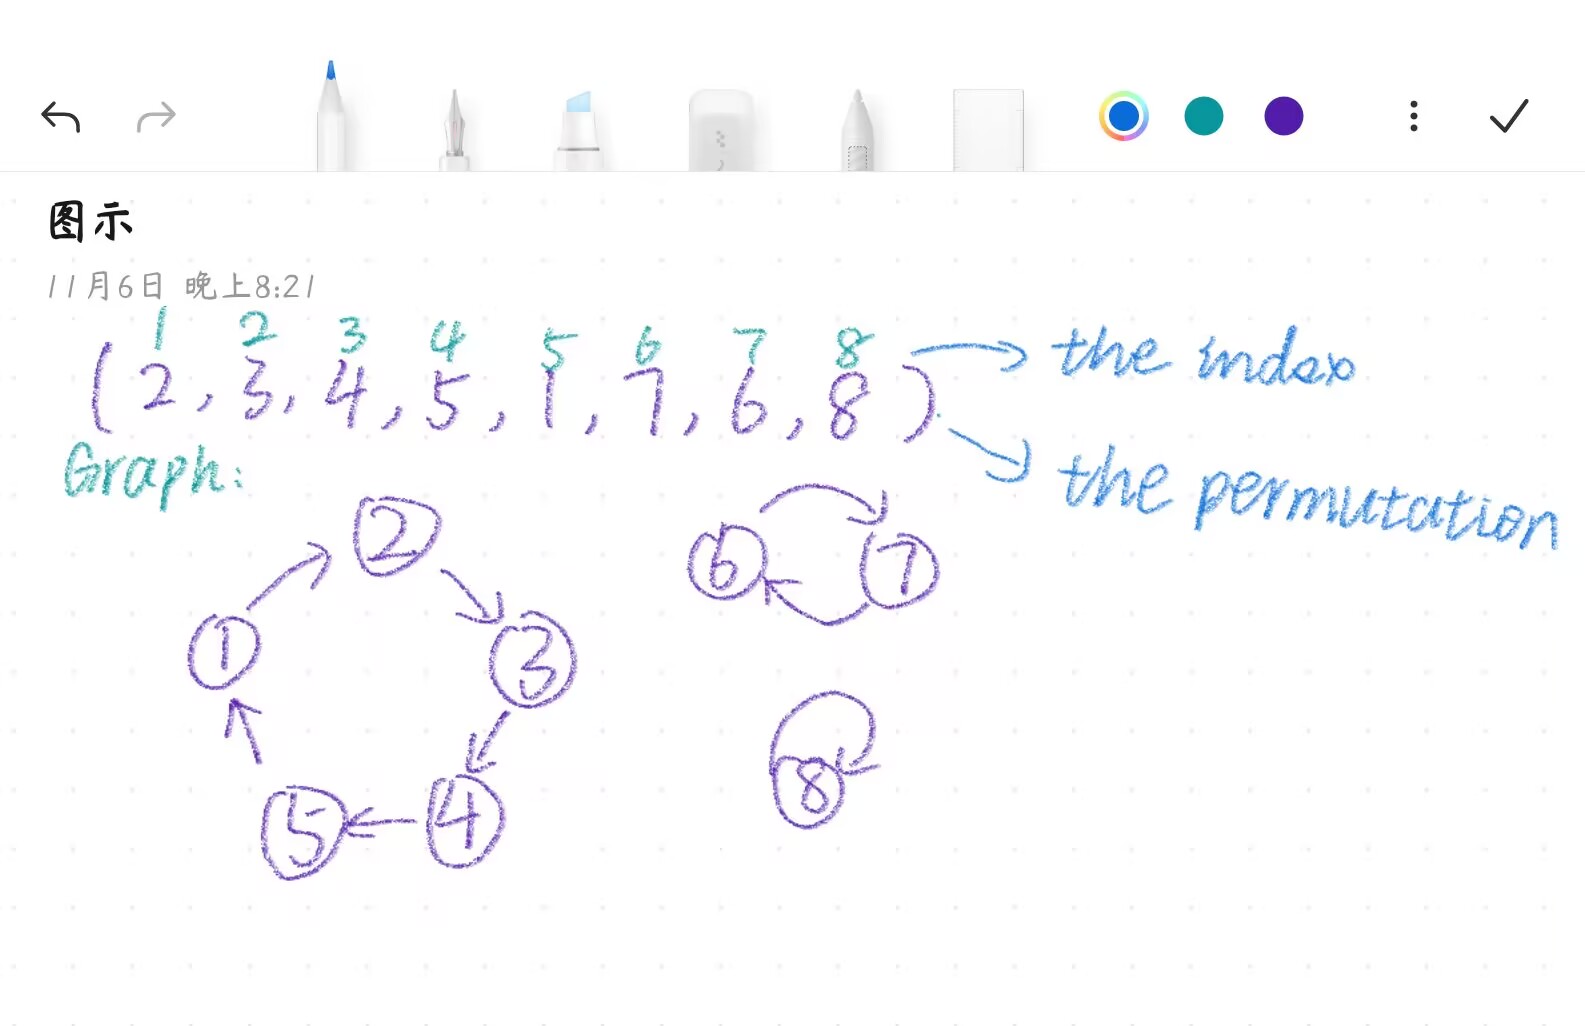 图示
11月6日 晚上8:21
1 2 3 4 5 6 7 8 the index
(2, 3, 4, 5, 1, 7, 6, 8) the permutation
Graph:
2
6 7
1 3
5 4 8